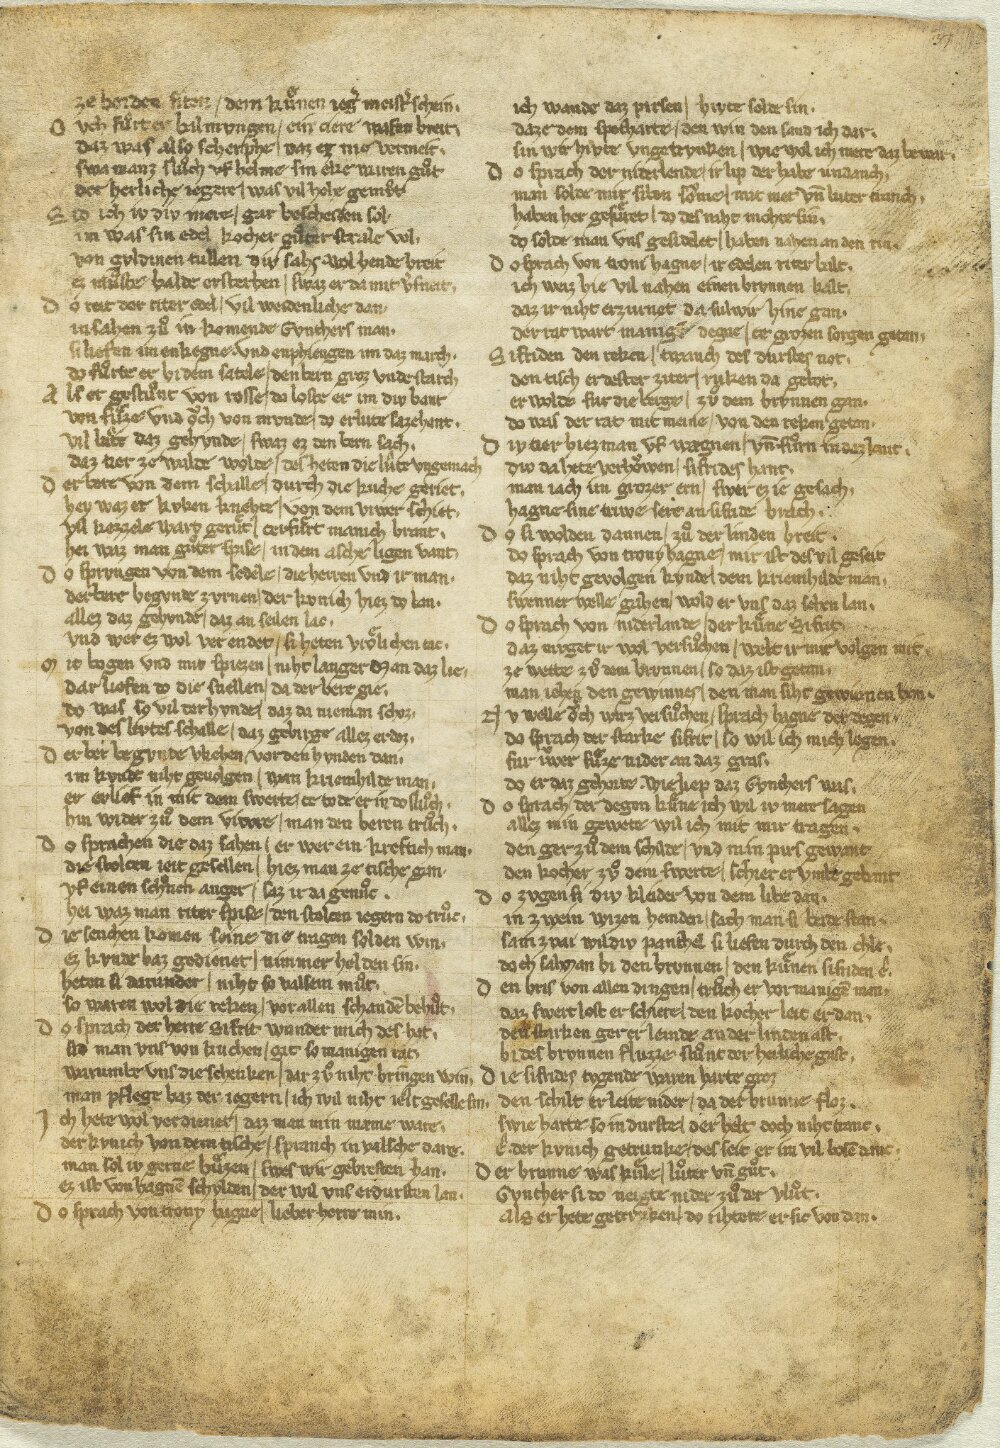 ze beiden siten / dem kuͦnen iegͤ meistͤ schein.
O vch fuͦrt er balmvngen / ein ciere wafen breit,
daz was also scherphe / daz ez nie vermeit.
swa manz sluͦch vf helme sin eke waren guͦt
der herliche iegere / was vil hohe gemuͦt
S id ich iv div mere / gar bescheiden sol.
im was sin edel kocher guͦter strale vol,
von gvldinen tullen div sahs wol hende breit
ez muͦste balde ersterben / swaz er da mit vͤsneit,
D o reit der riter edel / vil weidenliche dan.
in sahen zuͦ in komende Gvnthers man.
si liefen im enkegne vnd enphiengen im daz march.
do fuͦrte er bi dem satele / den bern groz vnde starch
A ls er gestuͦnt von rosse / do loste er im div bant
von fuͦze vnd oͮch von mvnde / do erlute sazehant.
vil lute daz gehvnde / swaz ez den bern sach,
daz tier ze walde wolde / des heten die luͦte vngemach
D er bere von dem schalle / durch die kuche geriet.
hey waz er kvken knehte / von dem viwer schiet,
vil kezzele wart geruͦrt / cerfuͦrt manich brant.
hei waz man guͦter spise / in dem asche ligen vant
D o sprvngen von dem sedele / die herren vnd ir man.
der bere begvnde zvrnen / der kvnich hiez do lan.
allez daz gehvnde / daz an seilen lac.
vnd wer ez wol verendet / si heten vroͤlichen tac.
M it bogen vnd mit spiezen / niht langer man daz lie,
dar liefen do die snellen / da der bere gie.
do was so vil der hvnde / daz da nieman schoz.
von des livtes schalle / daz gebirge allez erdoz.
D er ber begvnde vliehen / vor den hvnden dan.
im kvnde niht gevolgen / wan kriemhilde man.
er erlief in mit dem swerte / ce tode er in do sluͦch.
hin wider zuͦ dem viwre / man den beren truͦch.
D o sprachen die daz sahen / er wer ein kreftich man.
die stolcen ieit gesellen / hiez man ze tische gan.
vf einen schoͤnen anger / saz ir da genuͦc.
hei waz man riter spise / den stolcen iegern do truͦc.
D ie schenken komen seine die tragen solden win.
ez kvnde baz gedienet / nimmer helden sin.
heten si darunder / niht so valsem muͦt.
so waren wol die reken / vor allen schanden behuͦt.
D o sprach der herre Sifrit wunder mich des hat.
sid man vns von kuchen / git so manigen rat,
warumbe vns die schenken / dar zuͦ niht bringen win,
man pflege baz der iegern / ich wil niht ieit geselle sin.
I ch hete wol verdienet / daz man min name ware,
der kvnich von dem tische / sprach in valsche dare.
man sol iv gerne buͦzen / swes wir gebresten han.
ez ist von hagene schvlden / der wil vns erdursten lan.
D o sprach von trony hagne / lieber herre min.
ich wande daz pirsen / hivte solde sin.
daze dem spehtharte / den win den sand ich dar.
sin wir hivte vngetrvnken / wie wol ich mere daz bewar.
D o sprach der niderlende / ir lip der habe undanch,
man solde mir siben soͮme / mit met vnd luter tranch,
haben her gefuͦret / do des niht mohte sin.
do solde man vns gesidelet / haben nahen an den rin.
D o sprach von troni hagne / ir edelen riter balt.
ich waiz hie vil nahen einen brvnnen kalt,
daz ir niht erzurnet da sul wir hine gan.
der rat wart manigem degne / ce grozen sorgen getan,
S ifriden den reken / twanch des durstes not.
den tisch er dester ziter / rvken da gebot,
er wolde fur die berge / zuͦ dem brvnnen gan.
do was der rat mit meine / von den reken getan.
D iv tier hiez man vf wagnen / vnd fuͦrn in daz lant.
div da hete verhoͮwen / sifrides hant.
man iach im grozer ern / swer ez ie gesach,
hagne sine triwe sere an sifride brach.
D o si wolden dannen / zuͦ der linden breit
do sprach von trony hagne / mir ist des vil geseit
daz niht gevolgen kvnde / dem kriemhilde man,
swenner welle gahen / wold er vns daz sehen lan.
D o sprach von niderlande / der kuͦne Sifrit.
daz muget ir wol versuͦchen / welt ir mir volgen mit.
ze wette zuͦ dem brvnnen / so daz ist getan.
man iehe den gewinnes / den man siht gewunnen han.
N v welle oͮch wirz versuͦchen / sprach hagne der degen.
do sprach der starke sifrit / so wil ich mich legen.
fur iwer fuͦze nider an daz gras.
do er daz gehorte wie liep daz Gvnthers was.
D o sprach der degen kuͦne ich wil iv mere sagen
allez min gewete wil ich mit mir tragen.
den ger zuͦ dem schilde / vnd min pirs gewant
den kocher zuͦ dem swerte / schier er vmbe gebant
D o zvgen si div kleider von dem libe dan.
in zwein wizen hemden / sach man si beide stan.
sam zwai wildiv panthel si liefen durch den chle,
doch sah man bi den brvnnen / den kuͦnen sifriden e.
D en bris von allen dingen / truͦch er vor manigem man.
daz swert lost er schiere / den kocher leit er dan.
den starken ger er leinde an der linden ast,
bi des brvnnen fluzze stuͦnt der herliche gast,
D ie sifrides tvgende waren harte groz
den schilt er leite nider / da der brunne floz.
swie harte so in durste / der helt doch niht tranc,
e der kvnich getrunke / des seit er im vil bose danc.
D er brunne was kuͦle / luter vnd guͦt.
Gvnther si do neigte nider zuͦ der vluͦt.
als er hete getrvnken / do rihtete er sic von dan.